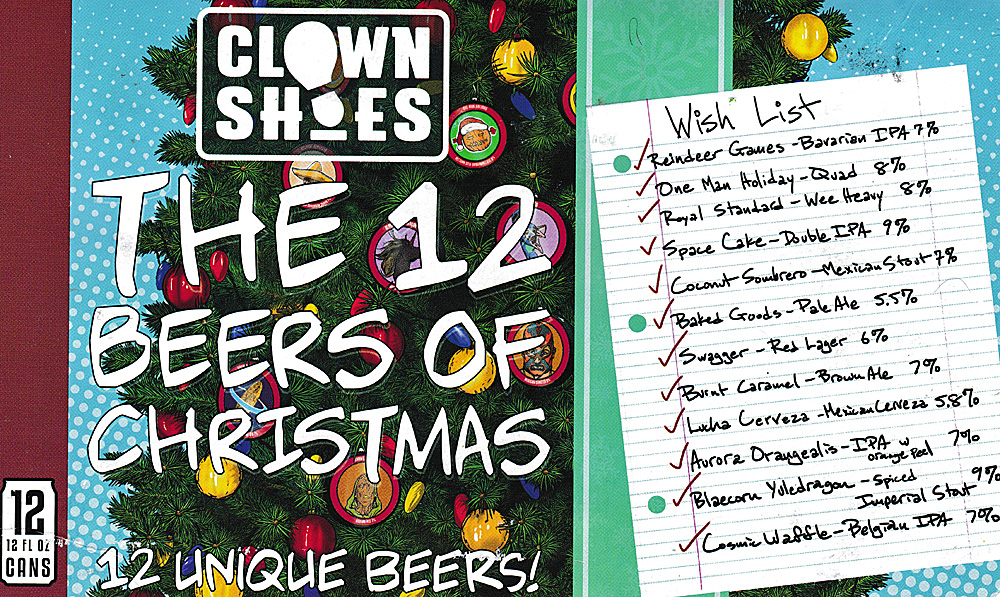 CLOWN
SHOES
THE 12
BEERS OF
CHRISTMAS
12 UNIQUE BEERS!
12
12 FL OZ
CANS
Wish List
Reindeer Games - Bavarian IPA 7%
One Man Holiday - Quad 8%
Royal Standard - Wee Heavy 8%
Space Cake - Double IPA 9%
Coconut Sombrero - Mexican Stout 7%
Baked Goods - Pale Ale 5.5%
Swagger - Red Lager 6%
Burnt Caramel - Brown Ale 7%
Lucha Cerveza - Mexican Cerveza 5.8%
Aurora Orangealis - IPA w 7%
orange Peel
Blaecorn Yuledragon - Spiced 9%
Imperial Stout
Cosmic Waffle - Belgian IPA 7%